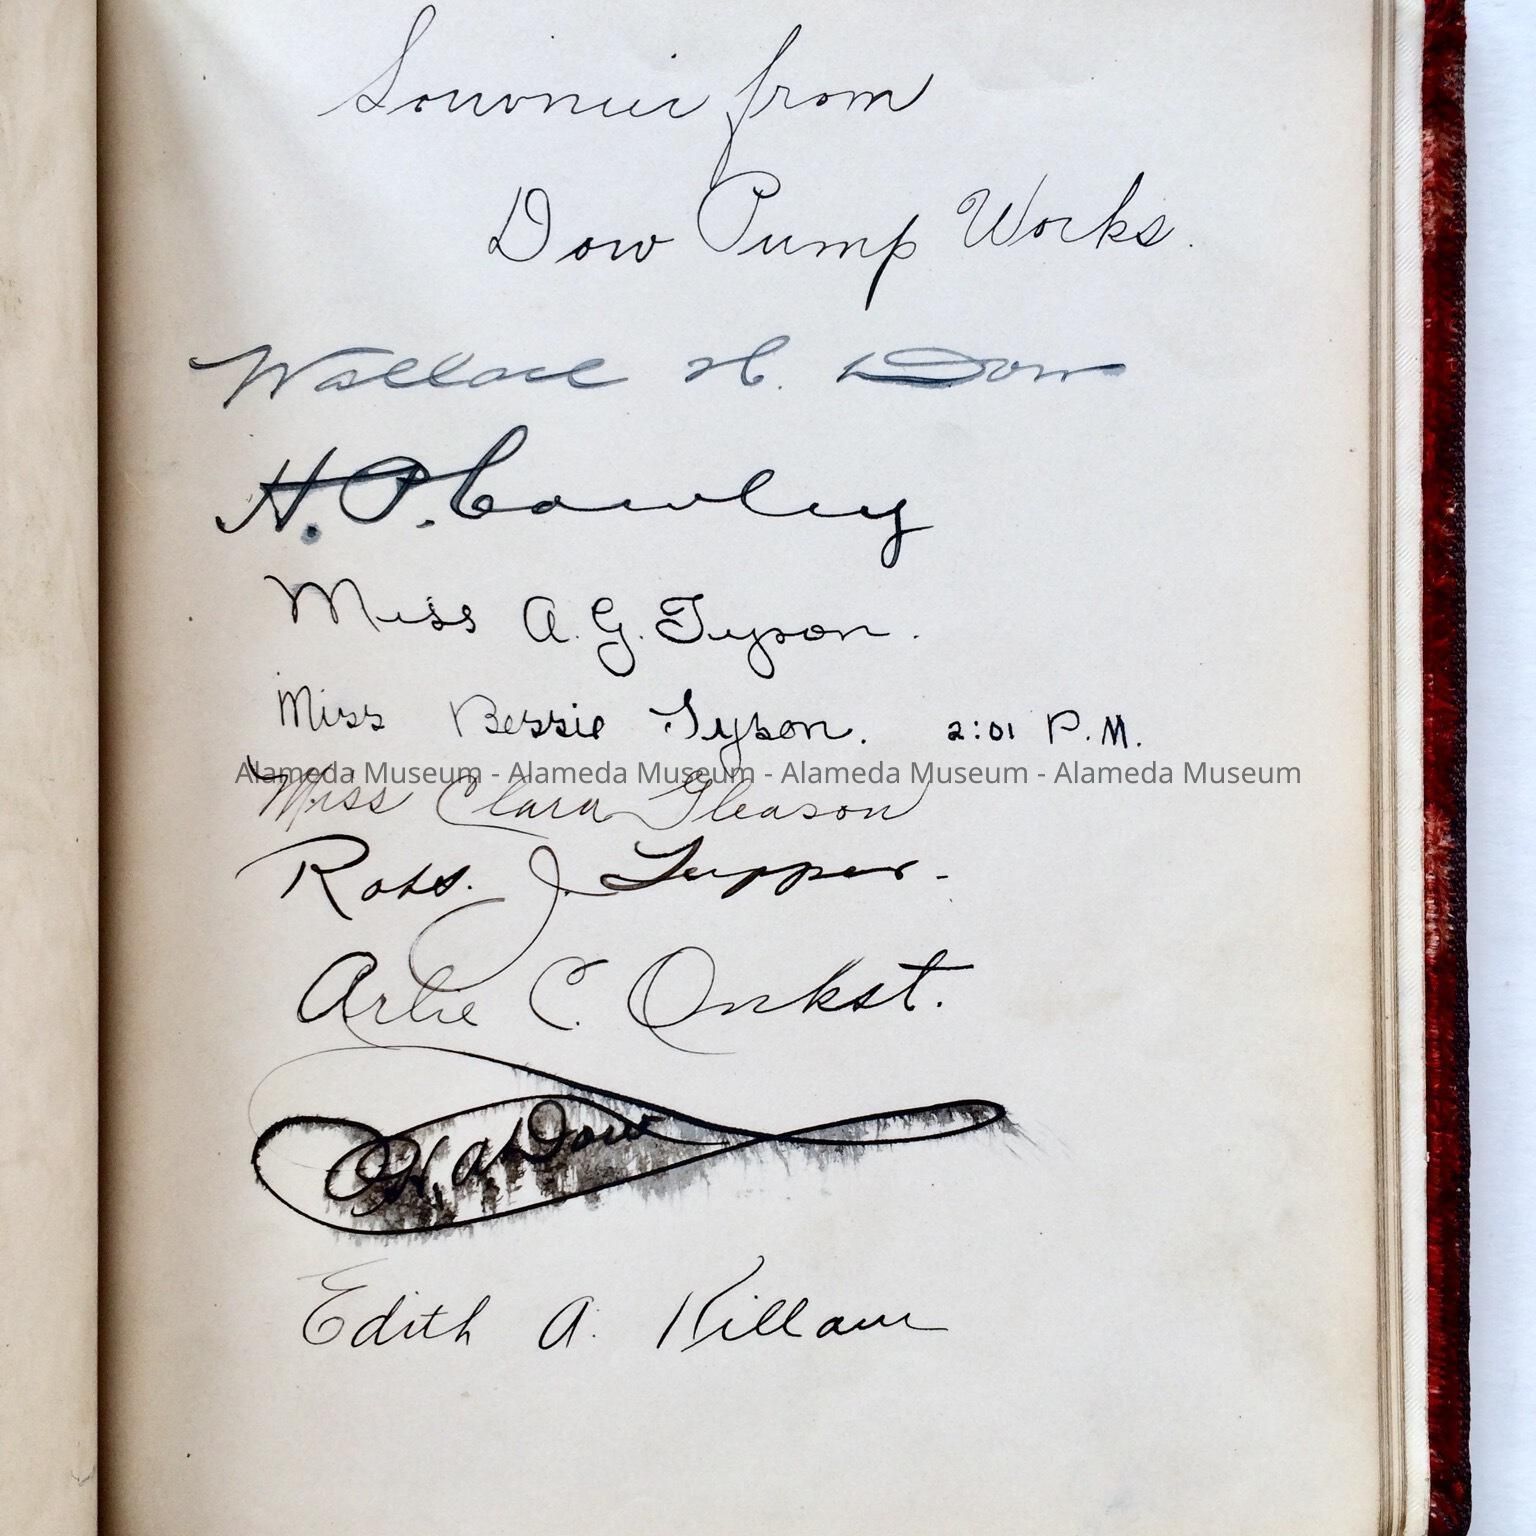 Souvnier from
Dow Pump Works.
Wallace H. Dow
H. P. Cowley
Miss A. G. Tyson.
Miss Bessie Tyson. 2:01 P.M.
Alameda Museum - Alameda Museum - Alameda Museum - Alameda Museum
Miss Clara Gleason
Ross. J. Tupper.
Arlie C. Onkst.
H. A. Dow
Edith A. Killam